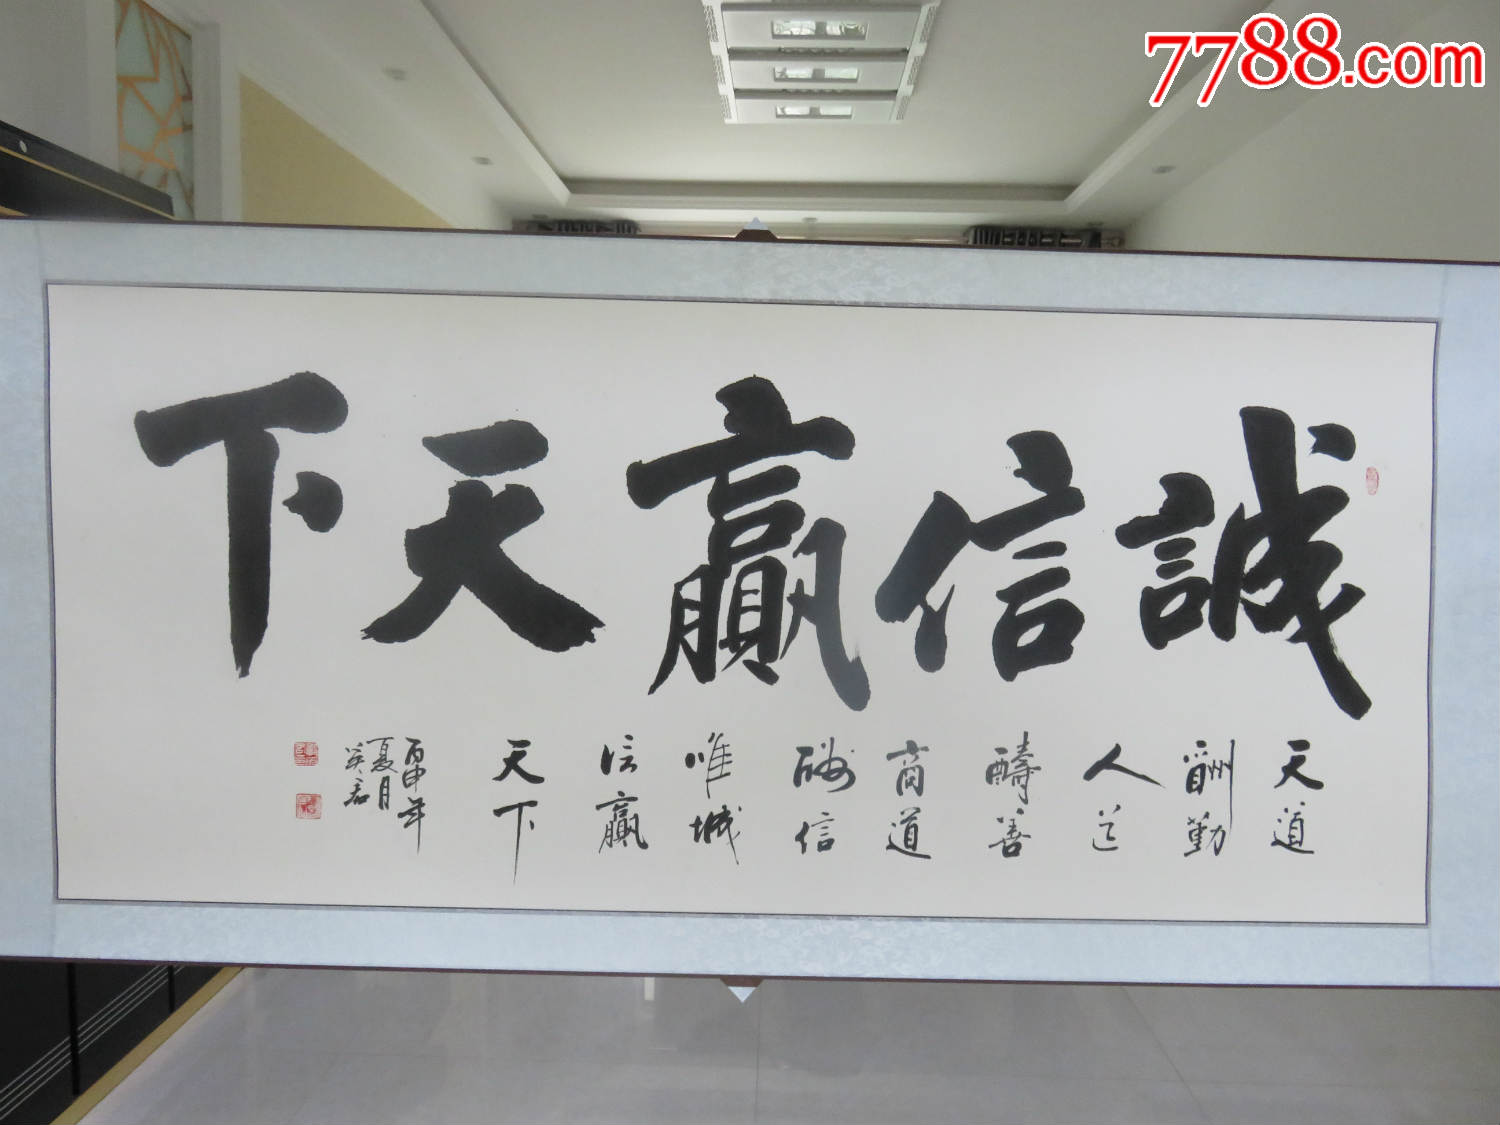 7788.com
誠信贏天下
天道
酬勤
人道
醻善
商道
酬信
唯诚
信贏
天下
丙申年
夏月